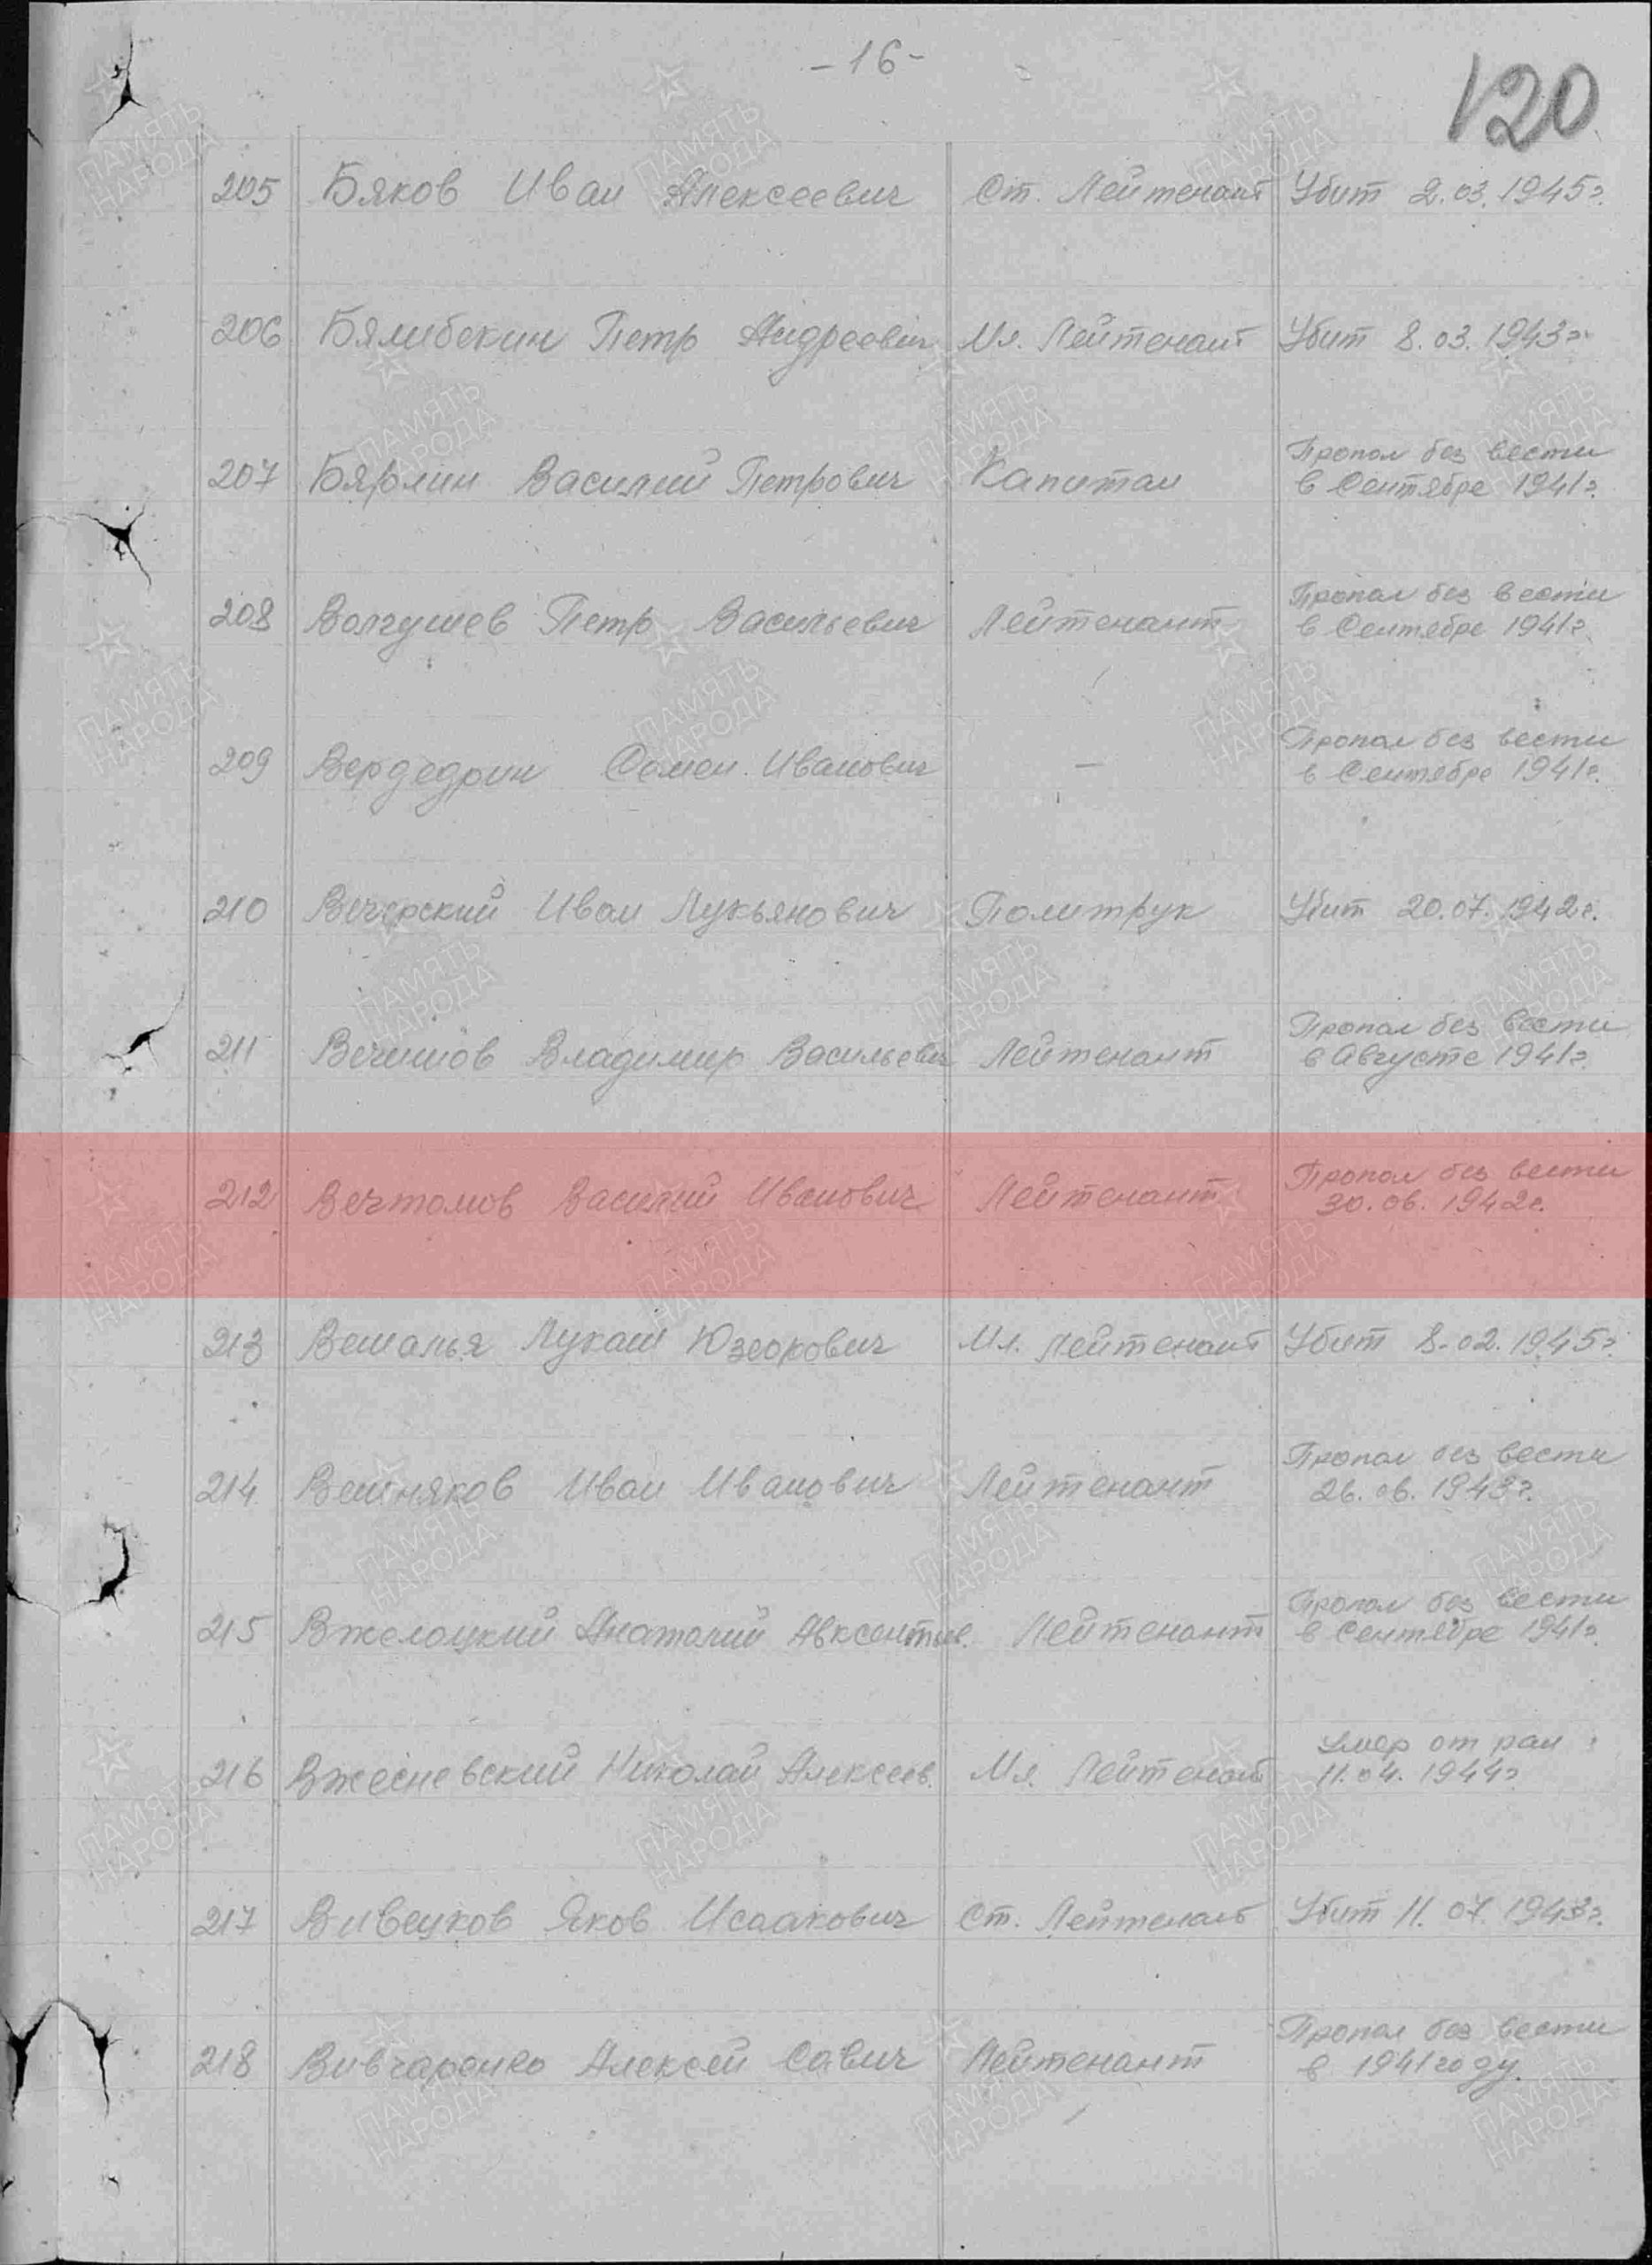 - 16 -
120
205 Бяков Иван Алексеевич Ст. Лейтенант Убит 2.03.1945г.
206 Бялибекин Петр Андреевич Мл. Лейтенант Убит 8.03.1943г.
207 Бярлин Василий Петрович Капитан Пропал без вести
в Сентябре 1941г.
208 Волгушев Петр Васильевич Лейтенант Пропал без вести
в Сентябре 1941г.
209 Семен Иванович — Пропал без вести
в Сентябре 1941г.
210 Вечерский Иван Лукьянович Политрук Убит 20.07.1942г.
211 Владимир Васильевич Лейтенант Пропал без вести
в Августе 1941г.
212 Вечтомов Василий Иванович Лейтенант Пропал без вести
30.06.1942г.
213 Лукаш Мл. Лейтенант Убит 8.02.1945г.
214 Вешняков Иван Иванович Лейтенант Пропал без вести
26.06.1943г.
215 Вжелоцкий Анатолий Авксентьев. Лейтенант Пропал без вести
в Сентябре 1941г.
216 Вжесневский Николай Алексеев. Мл. Лейтенант Умер от ран
11.04.1944г.
217 Яков Исаакович Ст. Лейтенант Убит 11.07.1943г.
218 Вивчаренко Алексей Савич Лейтенант Пропал без вести
в 1941 году.
ПАМЯТЬ
НАРОДА